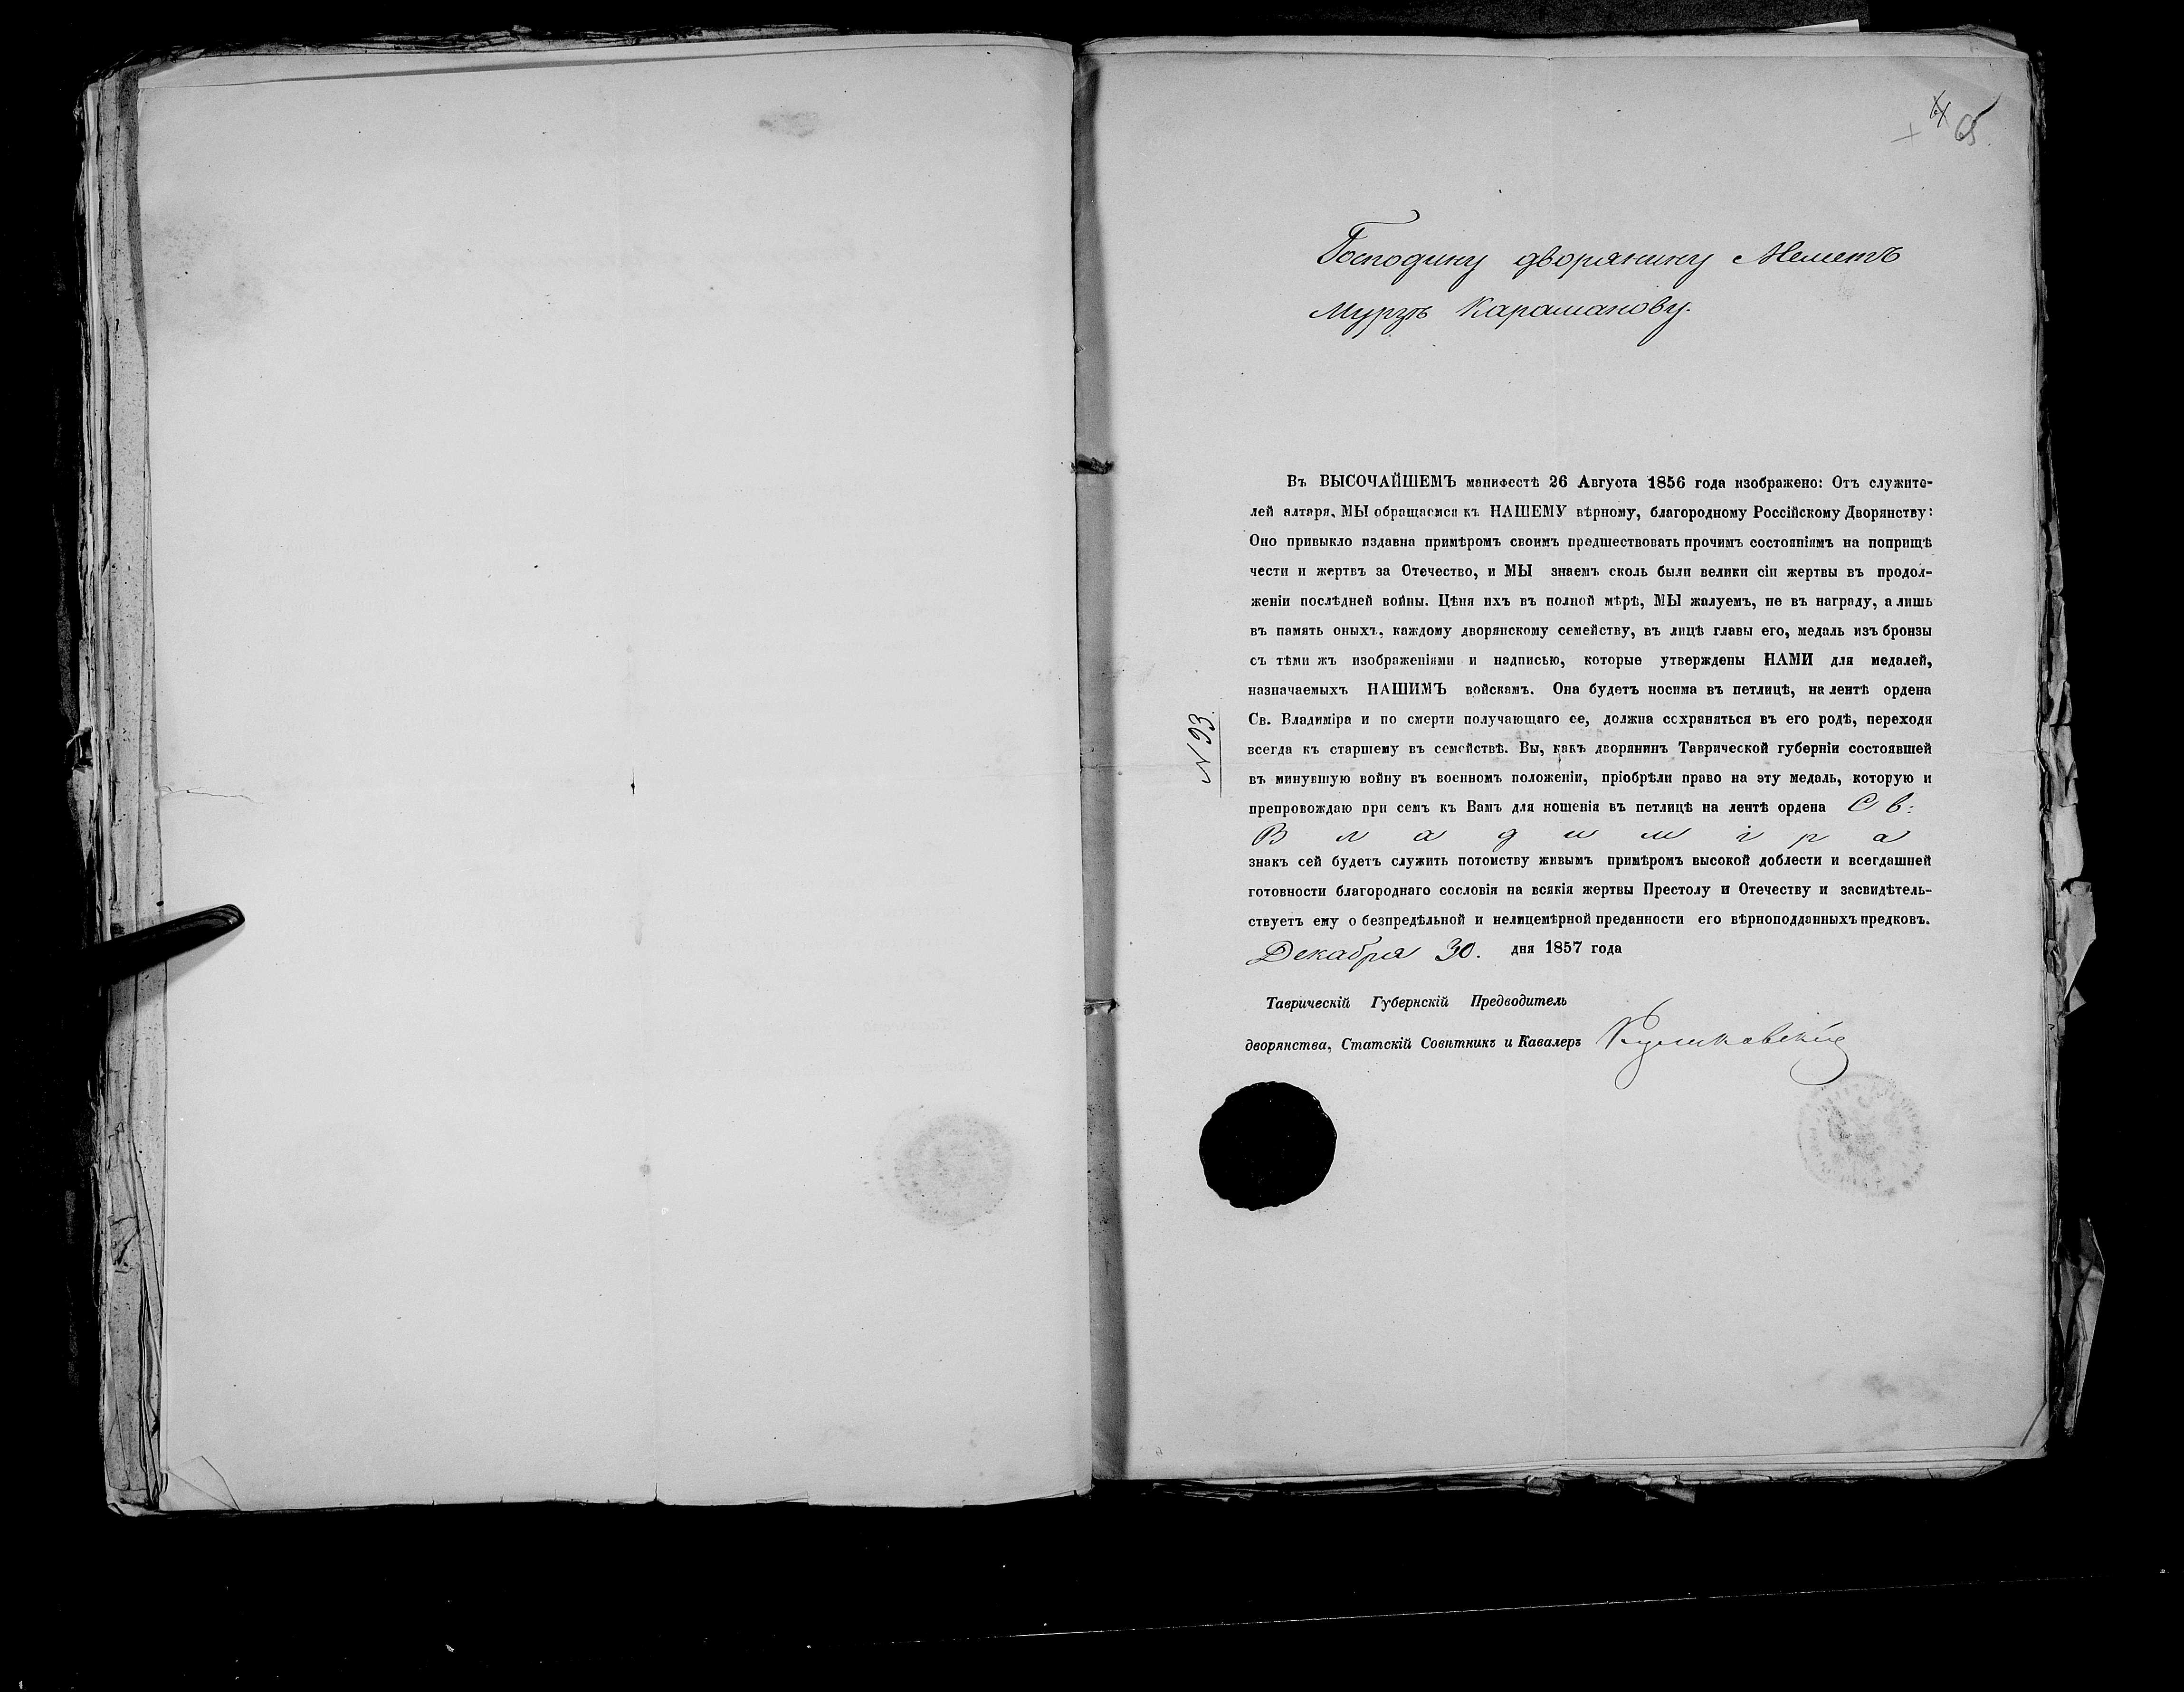 65.
Господину дворянину Меметъ
Мурзѣ Караманову.
Въ ВЫСОЧАЙШЕМЪ манифестѣ 26 Августа 1856 года изображено: Отъ служите-
лей алтаря, МЫ обращаемся къ НАШЕМУ вѣрному, благородному Россійскому Дворянству:
Оно привыкло издавна примѣромъ своимъ предшествовать прочимъ состояніямъ на поприщѣ
чести и жертвъ за Отечество, и МЫ знаемъ сколь были велики сіи жертвы въ продол-
женіи послѣдней войны. Цѣня ихъ въ полной мѣрѣ, МЫ жалуемъ, не въ награду, а лишь
въ память оныхъ, каждому дворянскому семейству, въ лицѣ главы его, медаль изъ бронзы
съ тѣми жъ изображеніями и надписью, которые утверждены НАМИ для медалей,
назначаемыхъ НАШИМЪ войскамъ. Она будетъ носима въ петлицѣ, на лентѣ ордена
Св. Владиміра и по смерти получающаго ее, должна сохраняться въ его родѣ, переходя
всегда къ старшему въ семействѣ. Вы, какъ дворянинъ Таврической губерніи состоявшей
въ минувшую войну въ военномъ положеніи, пріобрѣли право на эту медаль, которую и
препровождаю при семъ къ Вамъ для ношенія въ петлицѣ на лентѣ ордена Св:
Владиміра
знакъ сей будетъ служить потомству живымъ примѣромъ высокой доблести и всегдашней
готовности благороднаго сословія на всякія жертвы Престолу и Отечеству и засвидѣтель-
ствуетъ ему о безпредѣльной и нелицемѣрной преданности его вѣрноподданныхъ предковъ.
Декабря 30. дня 1857 года
Таврическій Губернскій Предводитель
дворянства, Статскій Совѣтникъ и Кавалеръ Куликовскій
N 93.